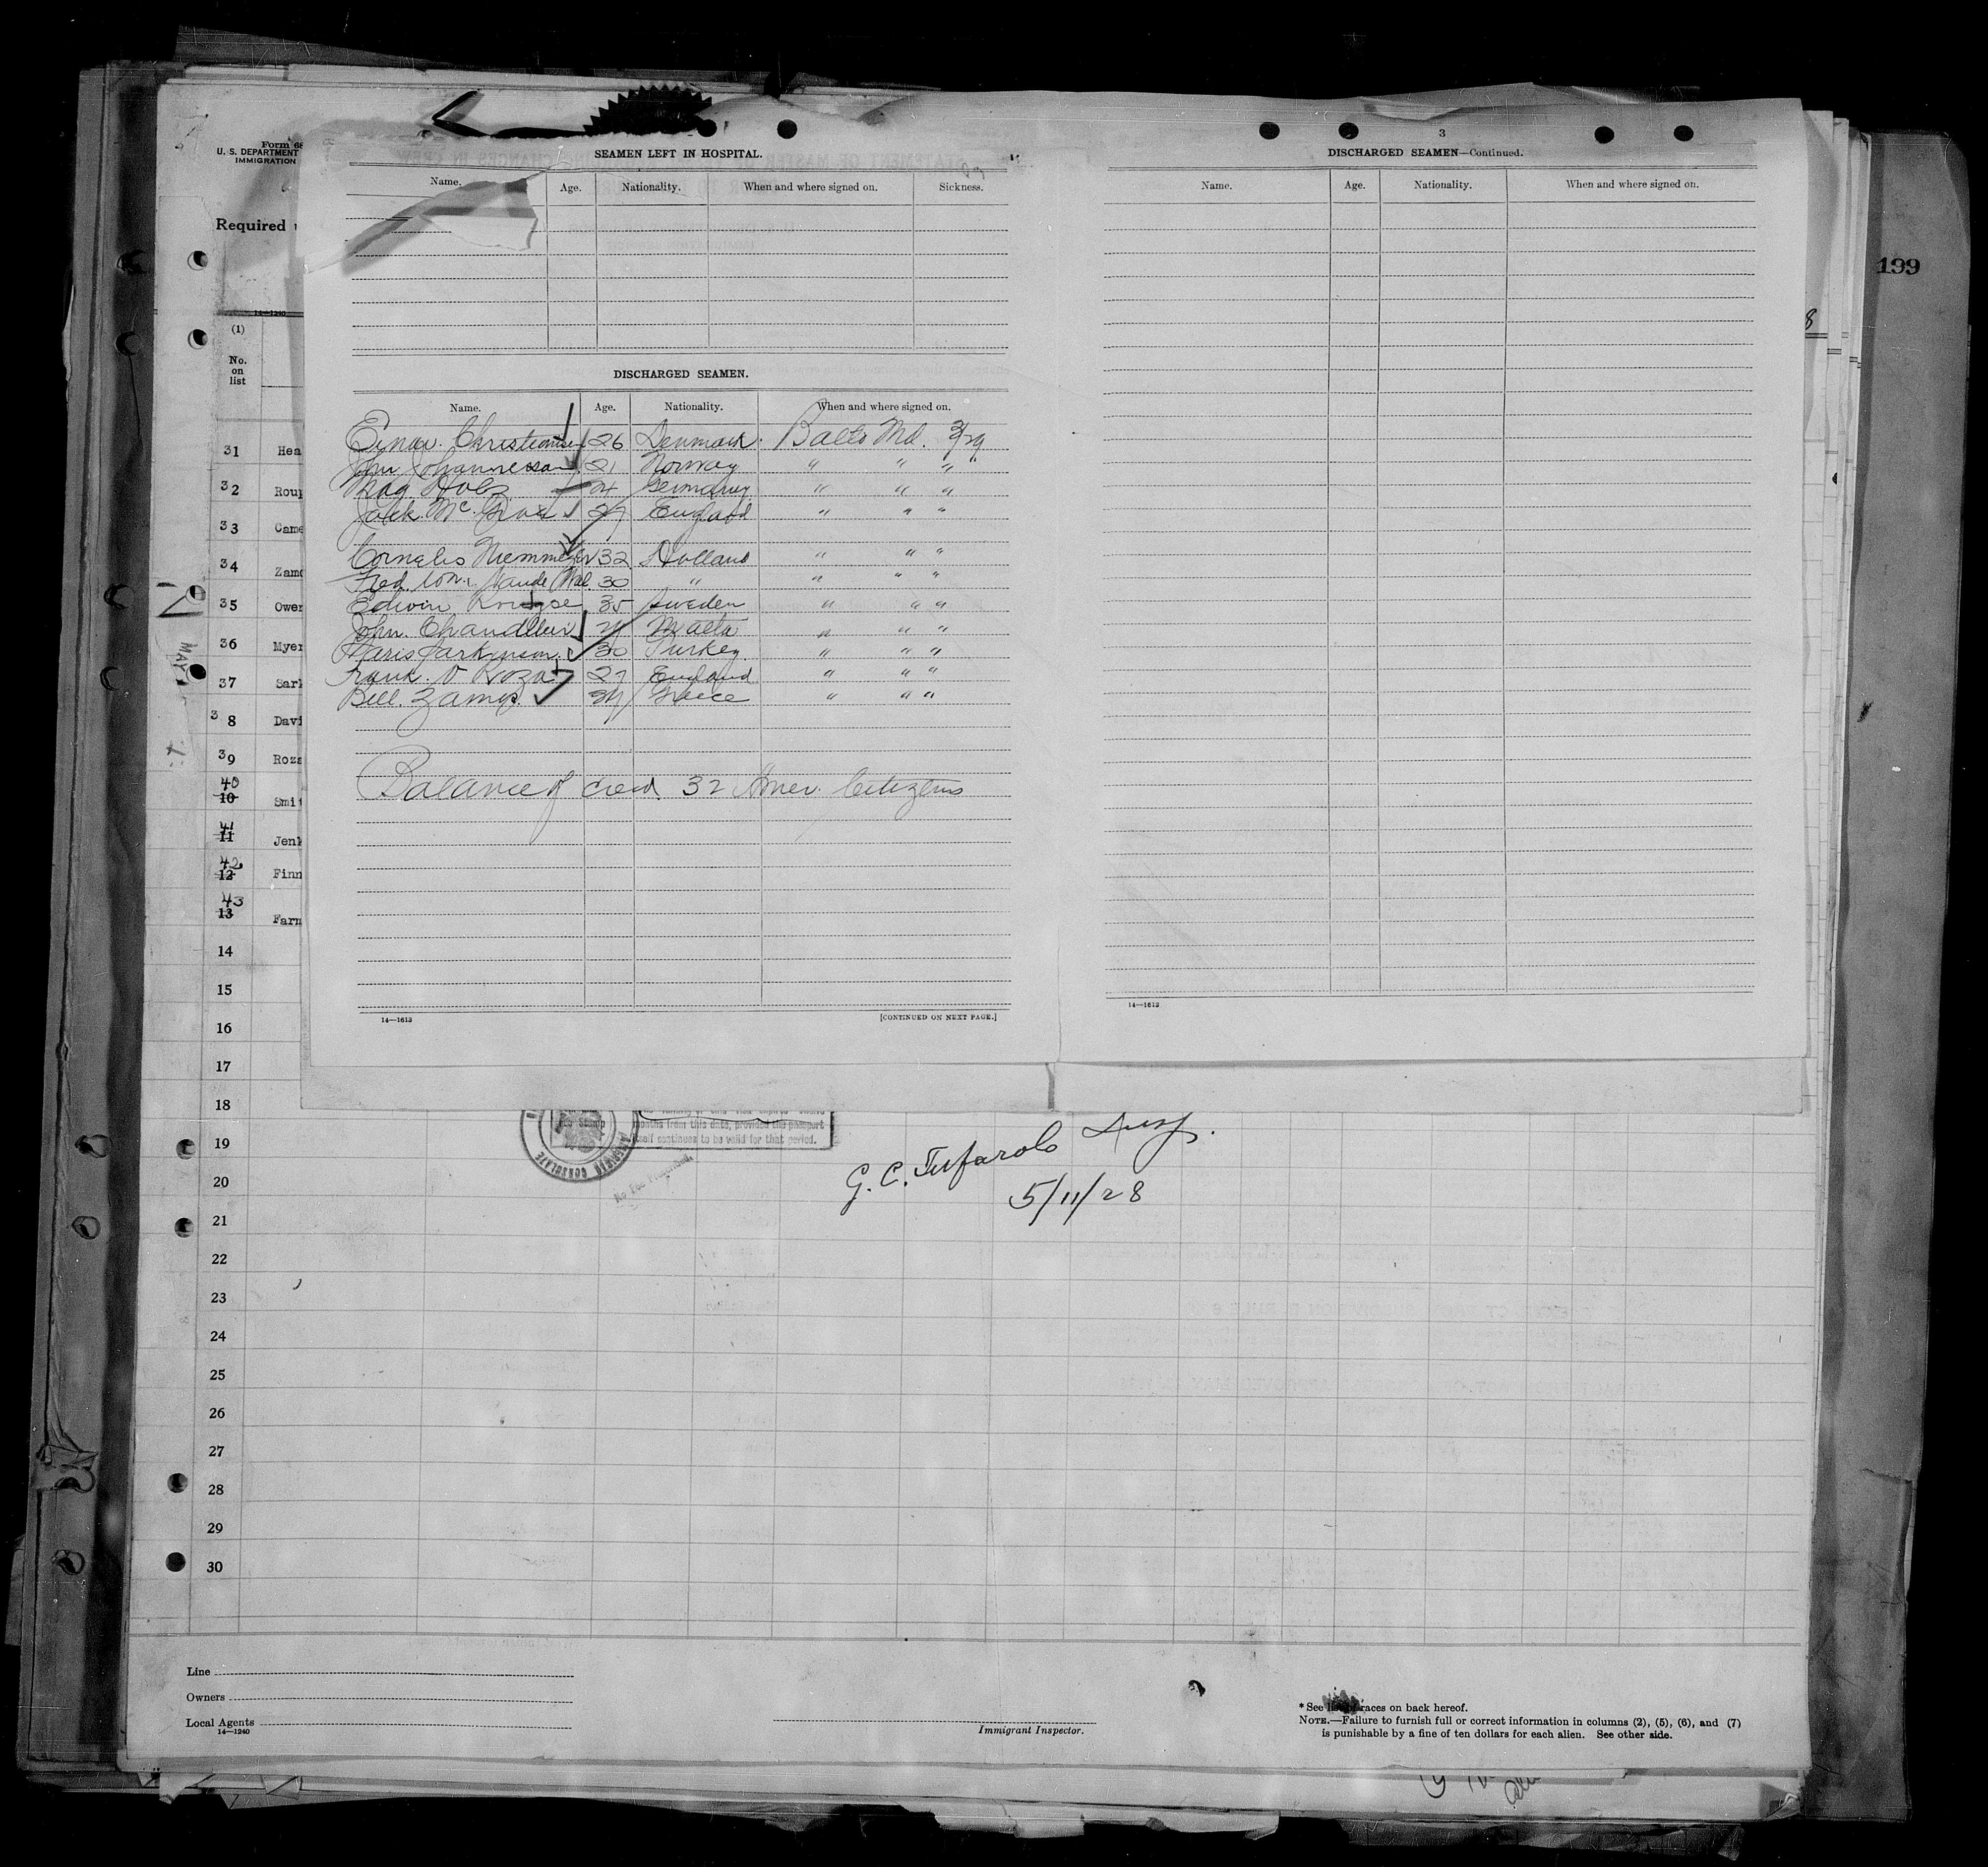 3
199
8
Form 68
U. S. DEPARTMENT
IMMIGRATION
Required
14—1240
(1)
No.
on
list
31 Hea
32 Rou
33 Came
34 Zamo
35 Owen
36 Myer
37 Sark
38 Davi
39 Roza
40 10 Smit
41 11 Jenk
42 12 Finn
43 13 Farn
14
15
16
17
18
19
20
21
22
23
24
25
26
27
28
29
30
MAY
SEAMEN LEFT IN HOSPITAL.
Name. Age. Nationality. When and where signed on. Sickness.
DISCHARGED SEAMEN.
Name. Age. Nationality. When and where signed on.
Einar. Christiansen 26 Denmark. Balto Md.
John Johannessan 21 Norway " " " "
24 Germany " " "
Jack. Mc. 29 England " " "
Cornelis 32 Holland " " "
Fred. 30 " " " "
Edwin 35 Sweden " " "
John. Chandler Malta " " "
Parkinson. 30 Turkey " " "
Frank. Roza 27 England " " "
Bill. Zamos. Greece " " "
Balance of crew. 32 Amer. Citizens
14—1613
[CONTINUED ON NEXT PAGE.]
DISCHARGED SEAMEN—Continued.
Name. Age. Nationality. When and where signed on.
14—1613
months from this date, provided the passport
itself continues to be valid for that period.
AMERICAN CONSULATE
No Fee Prescribed.
G. C. Tufarolo Insp.
5/11/28
Line
Owners
Local Agents
14—1240
Immigrant Inspector.
* See list of races on back hereof.
NOTE.—Failure to furnish full or correct information in columns (2), (5), (6), and (7)
is punishable by a fine of ten dollars for each alien. See other side.